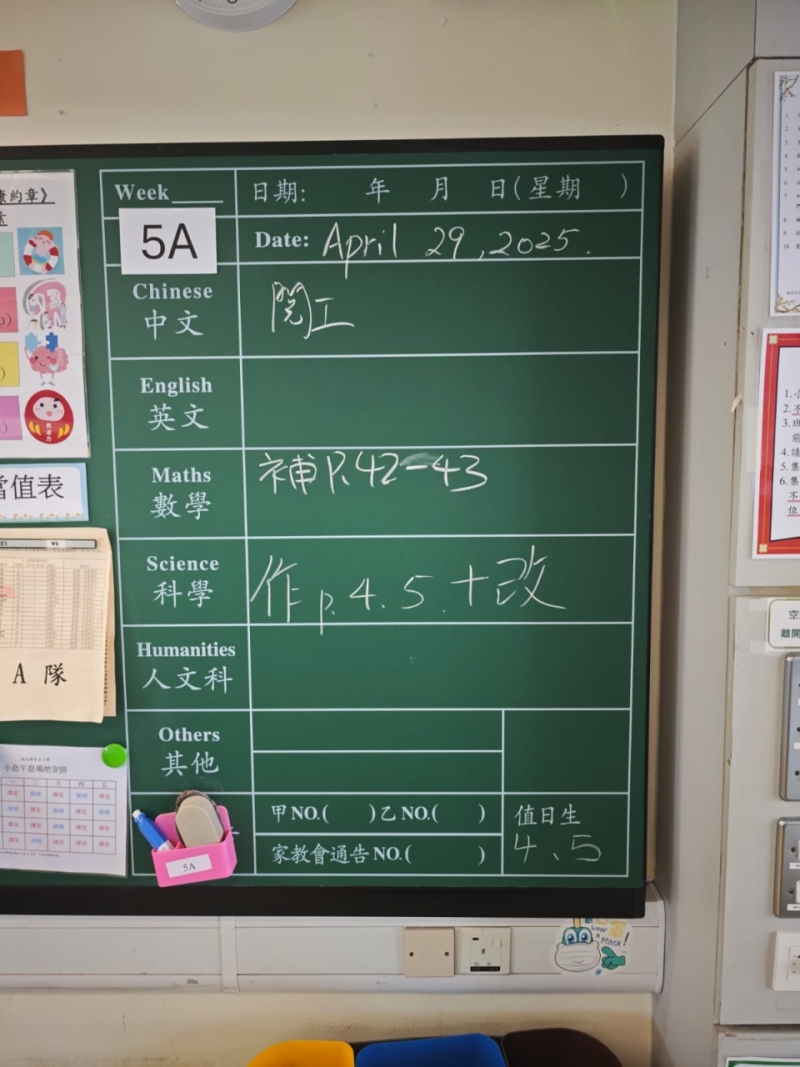 Week
日期: 年 月 日(星期 )
5A
Date: April 29, 2025.
Chinese
中文
閱工
English
英文
Maths
數學
補P.42-43
Science
科學
作p.4.5.+改
Humanities
人文科
Others
其他
甲NO.( )乙NO.( )
家教會通告NO.( )
值日生
4、5
5A
當值表
A 隊
小息午息場地安排
wear a Mask!